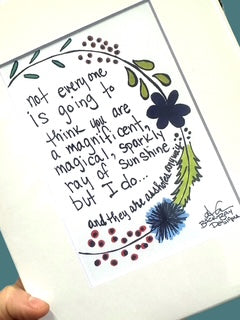 not everyone
is going to
think you are
a magnificent,
magical, sparkly
ray of sunshine
but I do...
and they are assholes anyway